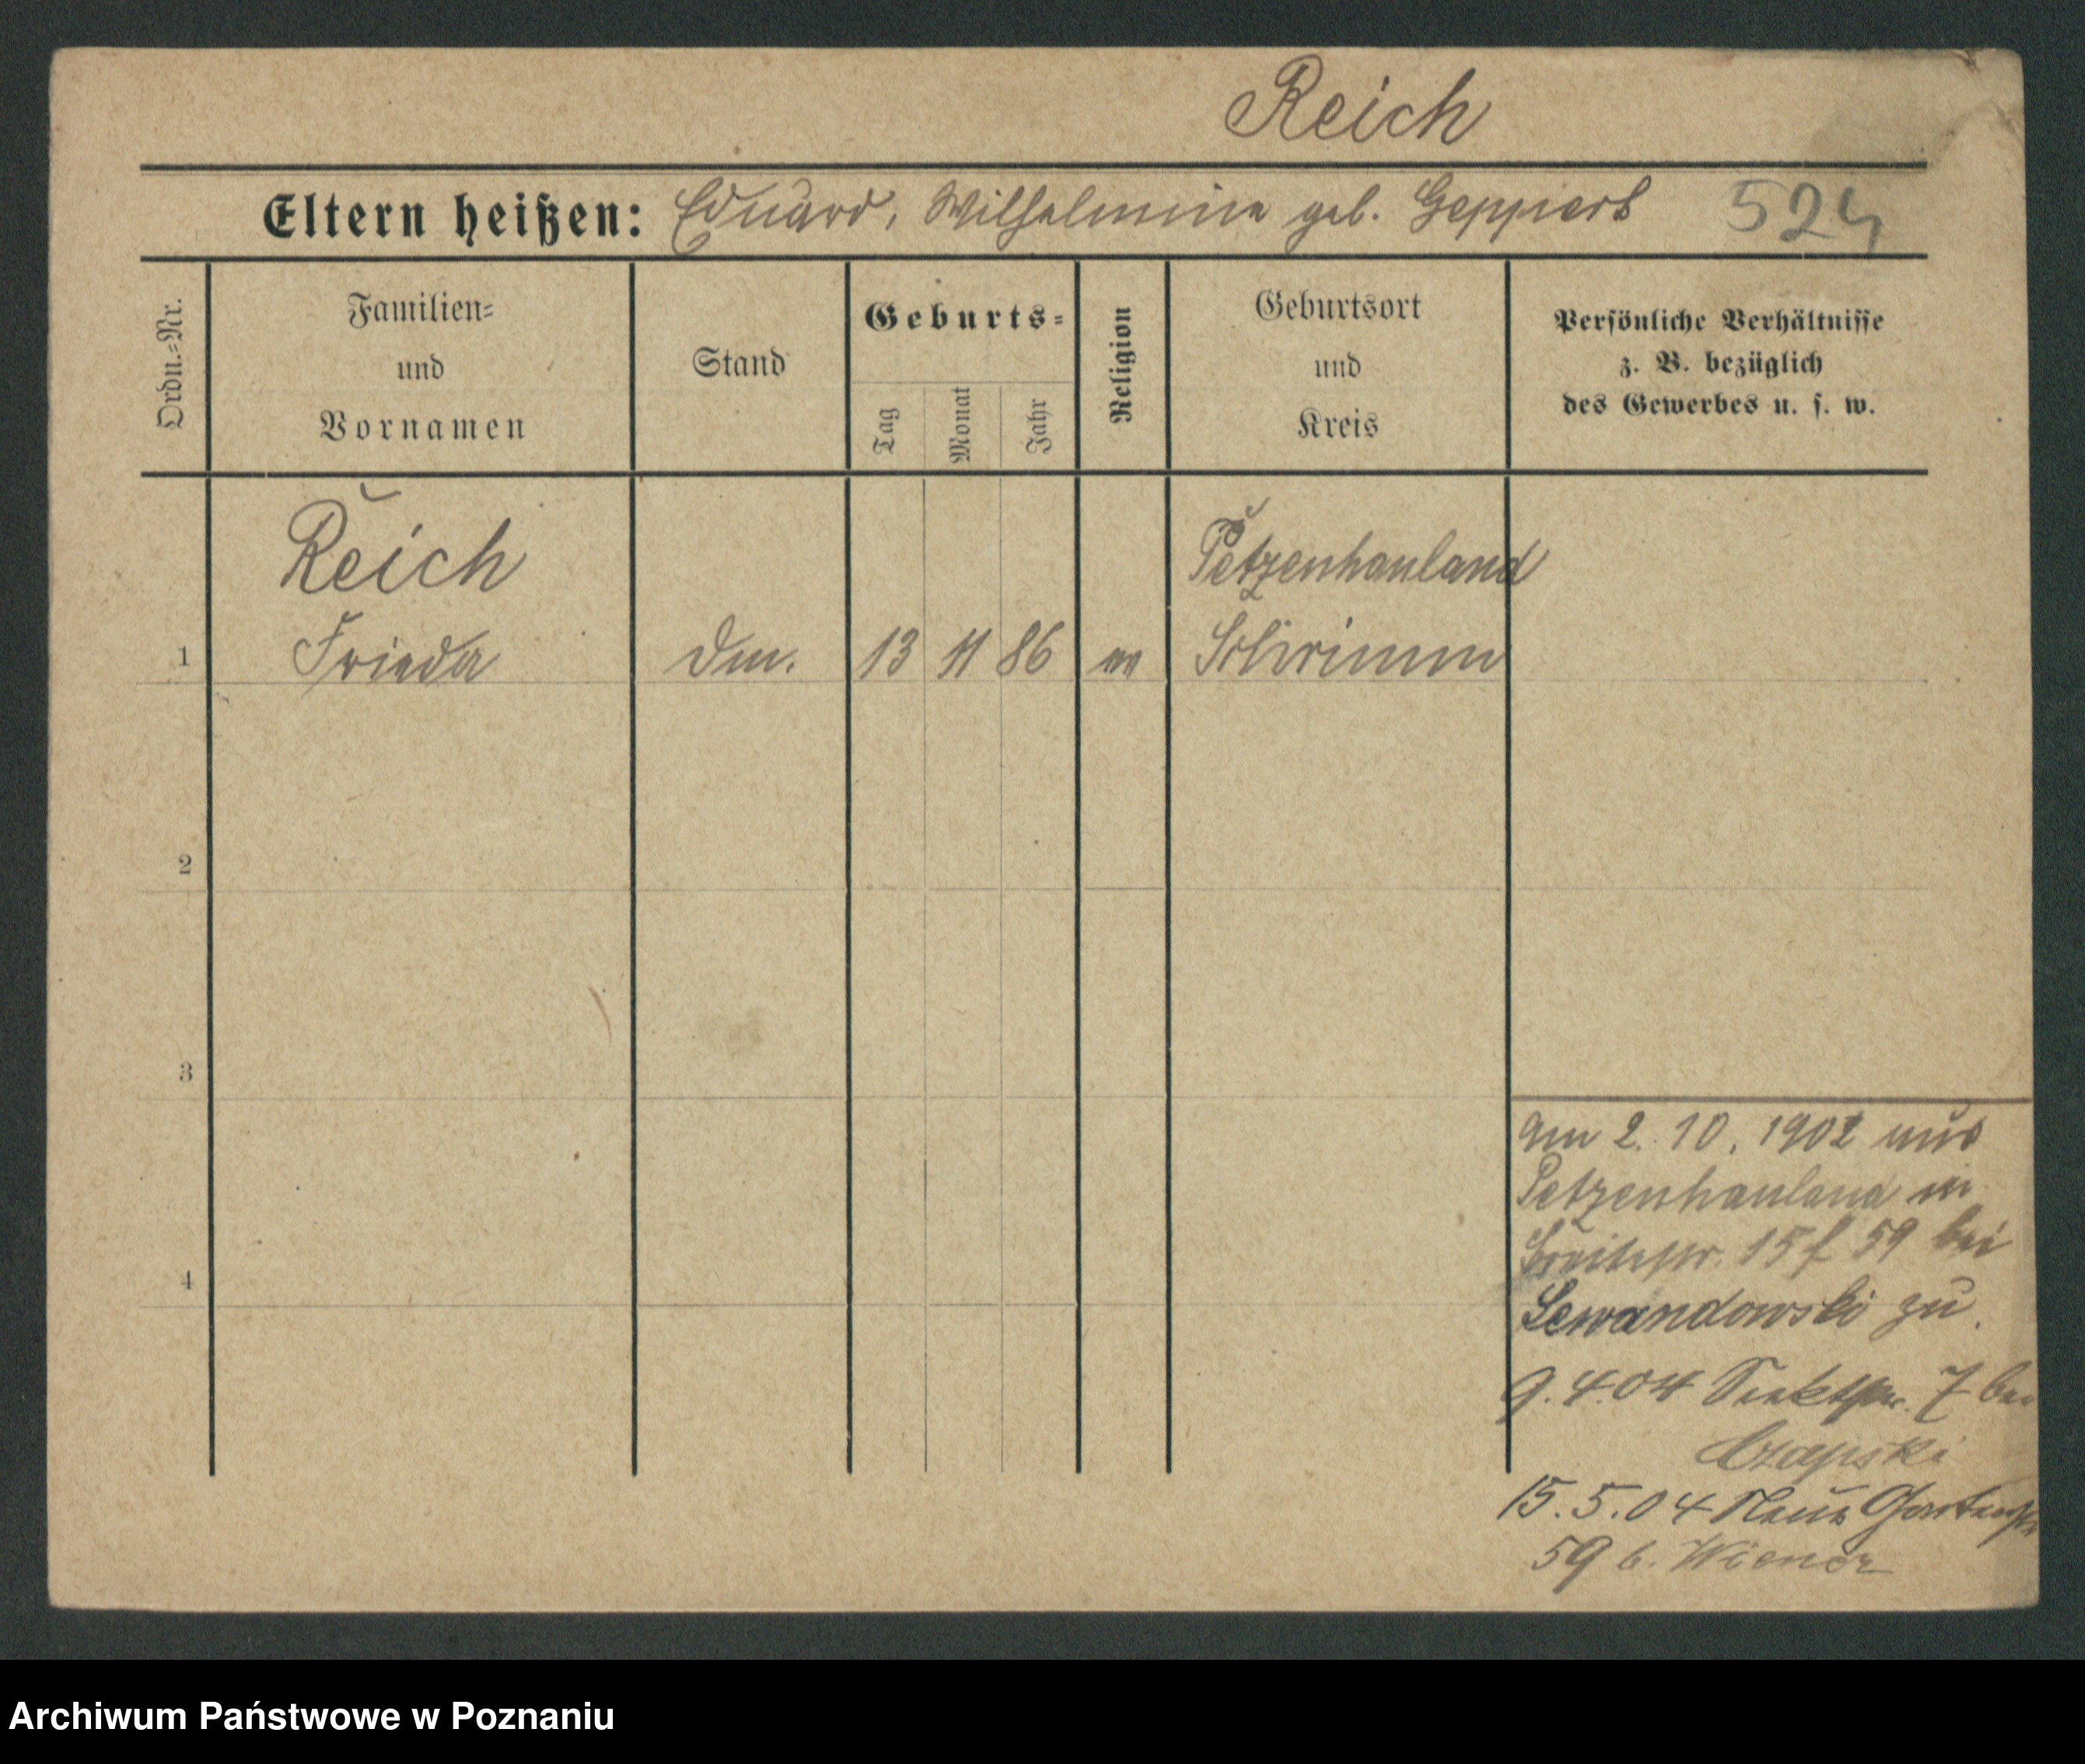 Reich
Eltern heißen: Eduard, Wilhelmine geb. Geppert 524
Ordn.=Nr.
Familien=
und
Vornamen
Stand
Geburts=
Tag
Monat
Jahr
Religion
Geburtsort
und
Kreis
Persönliche Verhältnisse
z. B. bezüglich
des Gewerbes u. s. w.
Reich Petzenhauland
1 Frieda 13 11 86 ev Schrimm
2
3
4
Am 2. 10. 1902 aus
Petzenhauland in
15 f 59 bei
Lewandowski zu.
9.4.04 7 bei
Czapski
15.5.04 Neue Gartenstr
59 b. Wiener
Archiwum Państwowe w Poznaniu